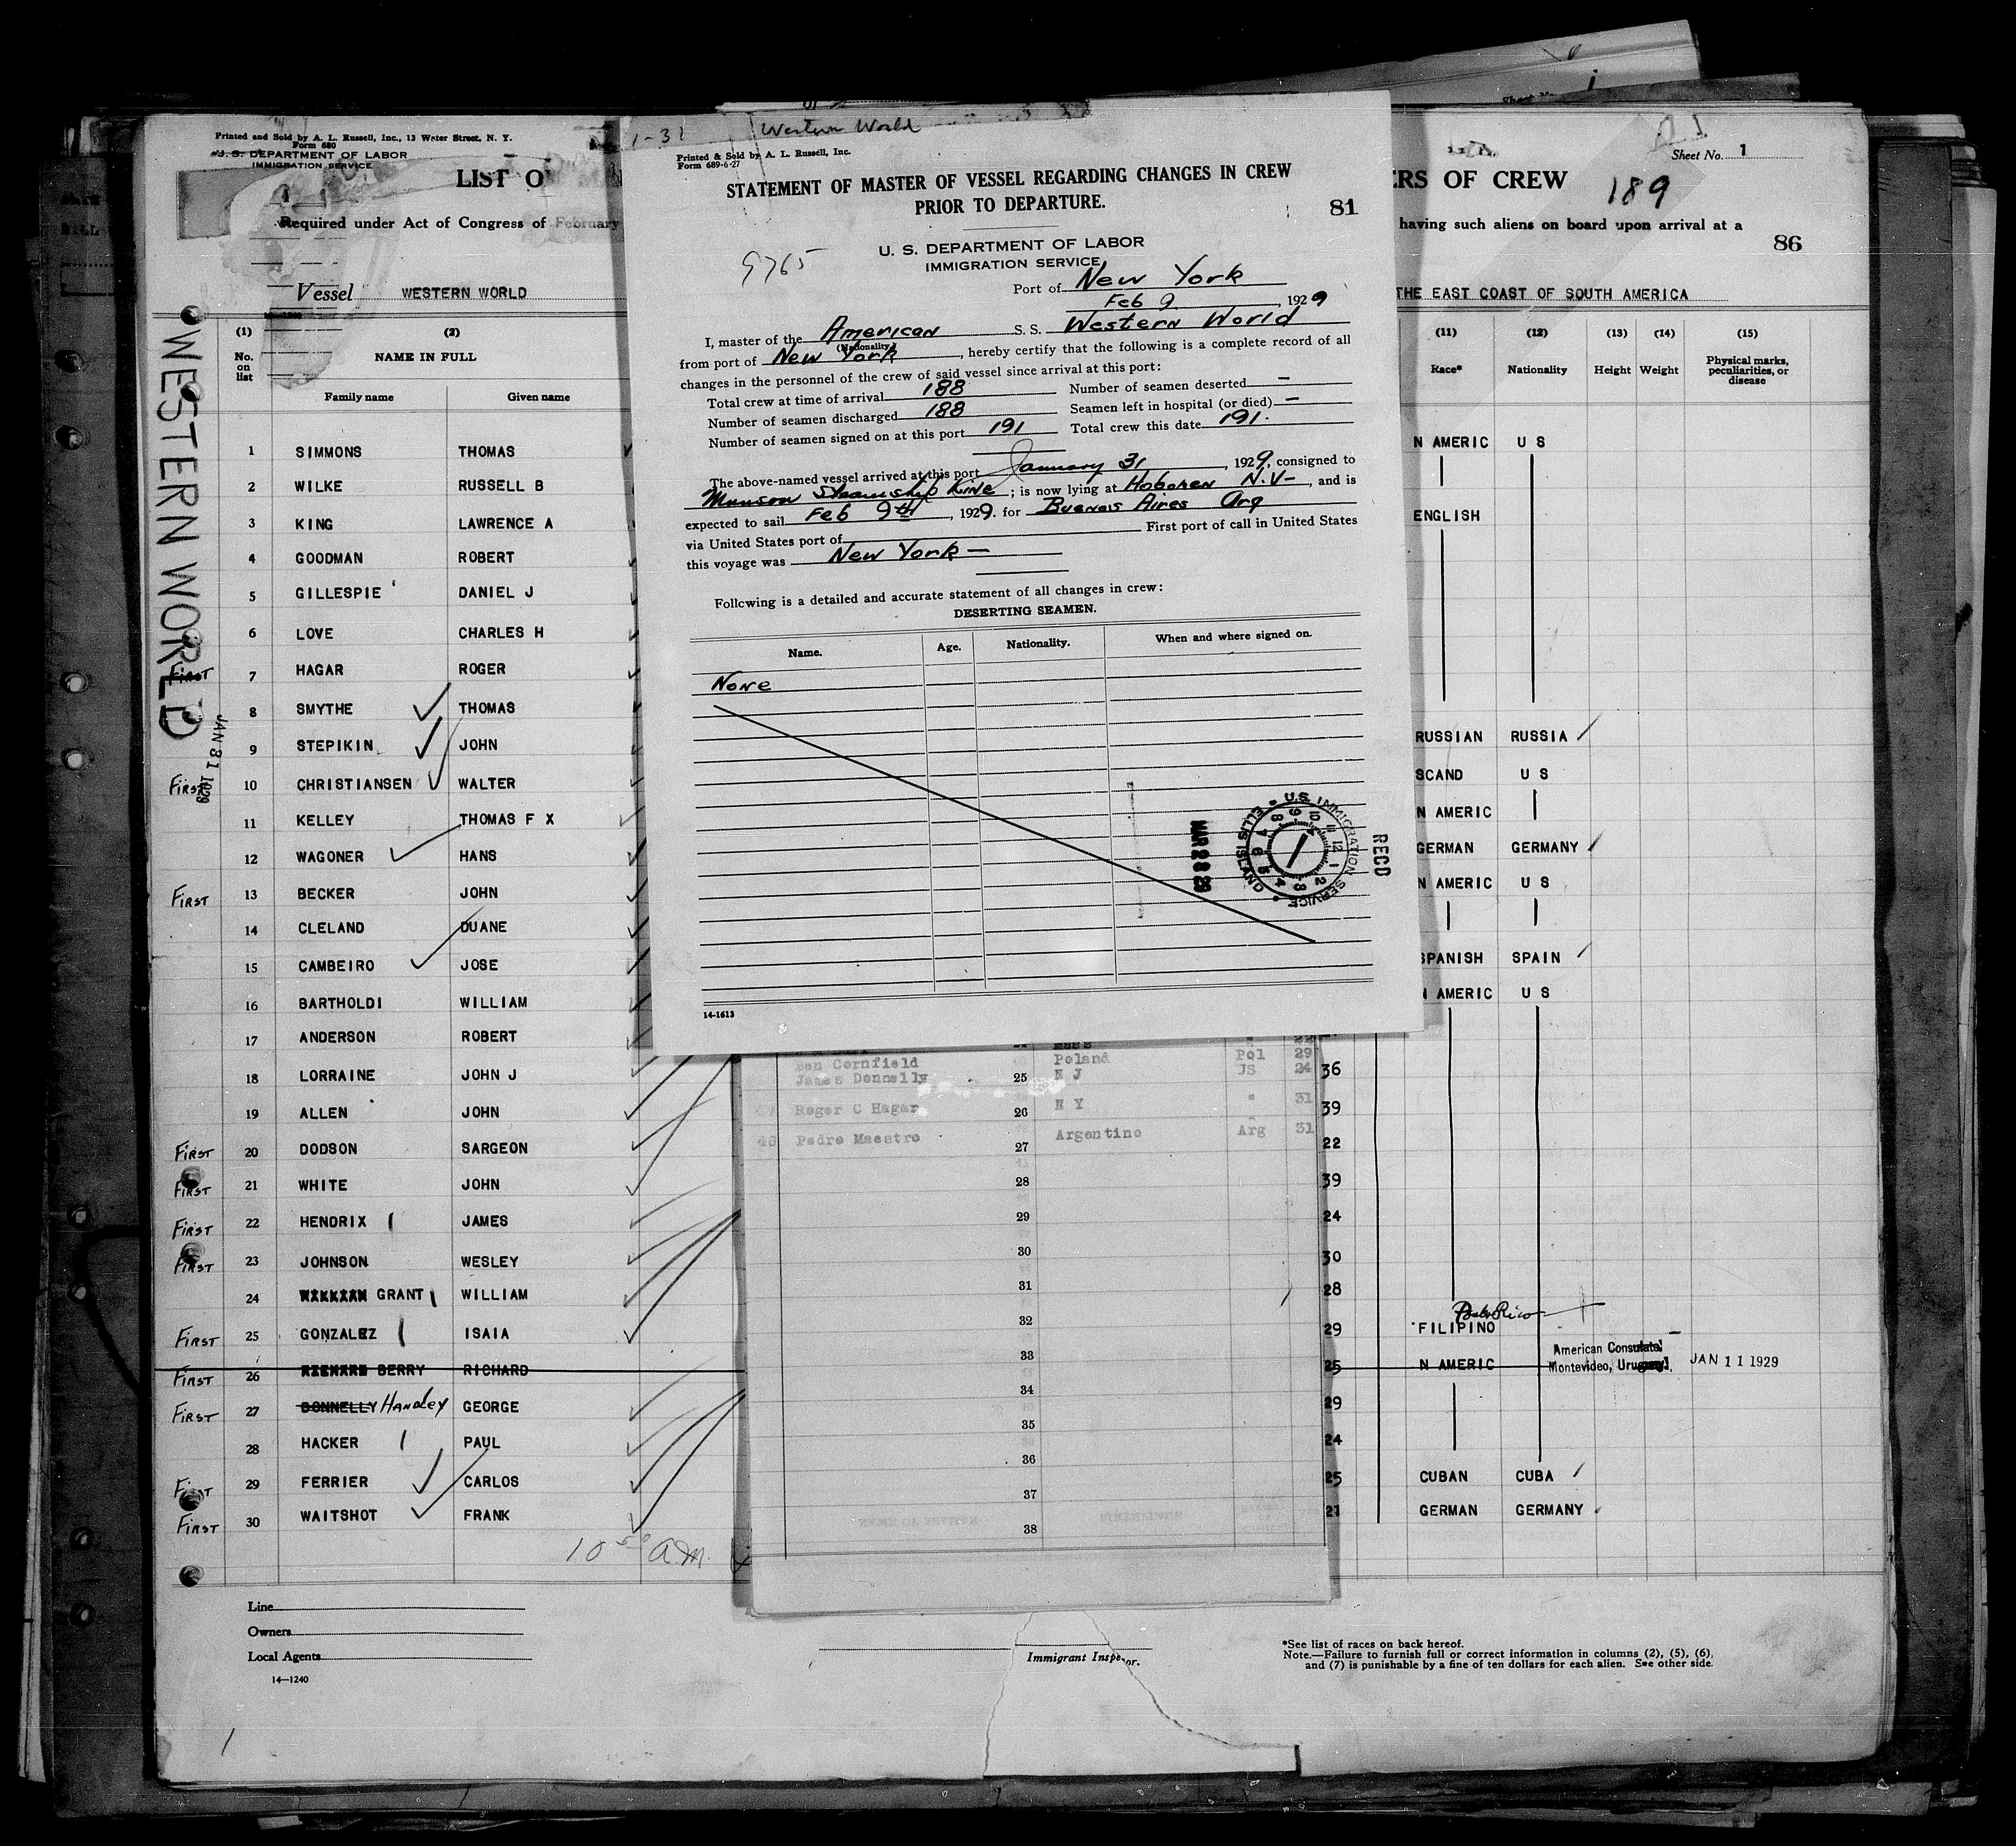 Printed and Sold by A. L. Russell, Inc., 13 Water Street, N. Y.
Form 680
U. S. DEPARTMENT OF LABOR
IMMIGRATION SERVICE
LIST O
Required under Act of Congress of February
Vessel WESTERN WORLD
WESTERN WORLD
JAN 31 1929
(1) (2)
No. on list
NAME IN FULL
Family name Given name
1 SIMMONS THOMAS
2 WILKE RUSSELL B
3 KING LAWRENCE A
4 GOODMAN ROBERT
5 GILLESPIE DANIEL J
6 LOVE CHARLES H
First 7 HAGAR ROGER
8 SMYTHE THOMAS
9 STEPIKIN JOHN
First 10 CHRISTIANSEN WALTER
11 KELLEY THOMAS F X
12 WAGONER HANS
First 13 BECKER JOHN
14 CLELAND DUANE
15 CAMBEIRO JOSE
16 BARTHOLDI WILLIAM
17 ANDERSON ROBERT
18 LORRAINE JOHN J
19 ALLEN JOHN
First 20 DODSON SARGEON
First 21 WHITE JOHN
First 22 HENDRIX JAMES
First 23 JOHNSON WESLEY
24 WILLIAM GRANT WILLIAM
First 25 GONZALEZ ISAIA
First 26 RICHARD BERRY RICHARD
First 27 DONNELLY Handley GEORGE
28 HACKER PAUL
First 29 FERRIER CARLOS
First 30 WAITSHOT FRANK
10 50 a.m.
Line
Owners
Local Agents
14—1240
1
1-31 Western World
Printed & Sold by A. L. Russell, Inc.
Form 689-6-27
STATEMENT OF MASTER OF VESSEL REGARDING CHANGES IN CREW
PRIOR TO DEPARTURE.
81
9765
U. S. DEPARTMENT OF LABOR
IMMIGRATION SERVICE
Port of New York
Feb 9, 1929
I, master of the American S. S. Western World
(Nationality)
from port of New York, hereby certify that the following is a complete record of all
changes in the personnel of the crew of said vessel since arrival at this port:
Total crew at time of arrival 188 Number of seamen deserted —
Number of seamen discharged 188 Seamen left in hospital (or died) —
Number of seamen signed on at this port 191 Total crew this date 191.
The above-named vessel arrived at this port January 31, 1929, consigned to
Munson Steamship Line; is now lying at Hoboken N.V-, and is
expected to sail Feb 9th, 1929. for Buenos Aires Arg
via United States port of First port of call in United States
this voyage was New York —
Following is a detailed and accurate statement of all changes in crew:
DESERTING SEAMEN.
Name. Age. Nationality. When and where signed on.
None
MAR 28 29
U.S. IMMIGRATION SERVICE ELLIS ISLAND
RECD
14-1613
Mass 22
Ben Cornfield Poland Pol 29
James Donnelly 25 N J US 24
47 Roger C Hagar 26 N Y " 31
48 Pedro Maestro 27 Argentino Arg 31
28
29
30
31
32
33
34
35
36
37
38
Immigrant Inspector.
ERS OF CREW
Sheet No. 1
189
having such aliens on board upon arrival at a
86
THE EAST COAST OF SOUTH AMERICA
(11) (12) (13) (14) (15)
Race* Nationality Height Weight Physical marks, peculiarities, or disease
N AMERIC U S
ENGLISH
RUSSIAN RUSSIA
SCAND U S
N AMERIC
GERMAN GERMANY
N AMERIC U S
SPANISH SPAIN
N AMERIC U S
36
39
22
39
24
30
28
Porto Rico
29 FILIPINO
25 N AMERIC American Consulate, Montevideo, Uruguay. JAN 11 1929
29
24
25 CUBAN CUBA
21 GERMAN GERMANY
*See list of races on back hereof.
Note.—Failure to furnish full or correct information in columns (2), (5), (6),
and (7) is punishable by a fine of ten dollars for each alien. See other side.